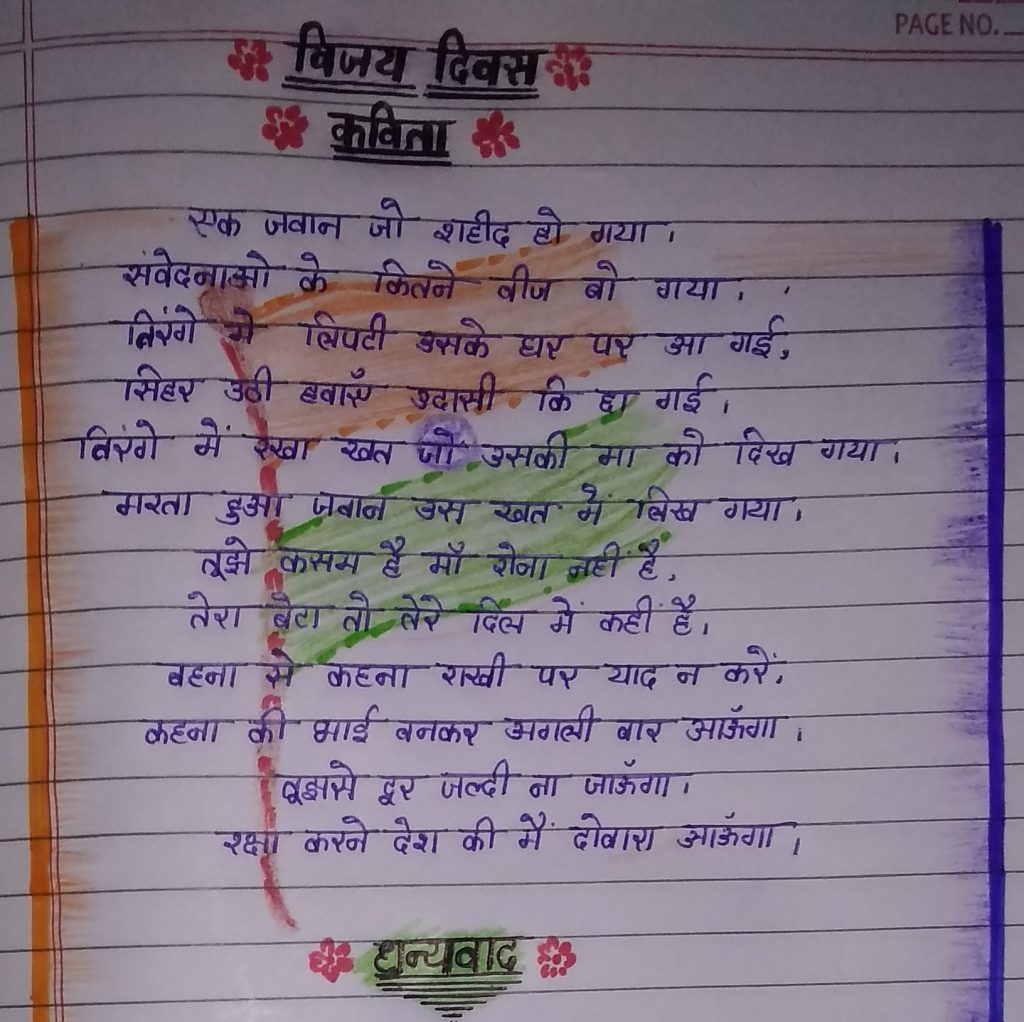 PAGE NO.
विजय दिवस
कविता
एक जवान जो शहीद हो गया।
संवेदनाओ के कितने वीज बो गया।
तिरंगे मे लिपटी उसके घर पर आ गई,
सिहर उठी हवाएँ उदासी कि छा गई।
तिरंगे में रखा खत जो उसकी मा को दिख गया।
मरता हुआ जवान उस खत में लिख गया।
तूझे कसम है माँ रोना नहीं है,
तेरा बेटा तो तेरे दिल में कहीं है।
बहना से कहना राखी पर याद न करें,
कहना की भाई बनकर अगली बार आऊँगा।
तूझसे दूर जल्दी ना जाऊँगा।
रक्षा करने देश की मैं दोबारा आऊँगा।
धन्यवाद